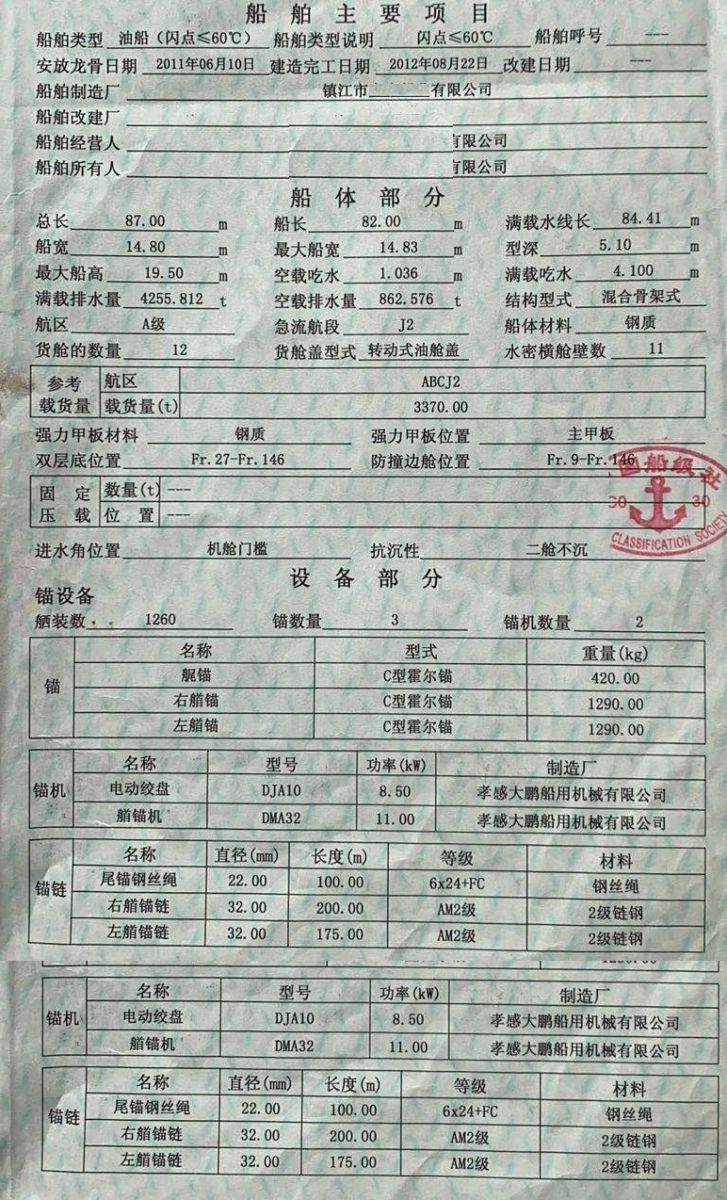 船舶主要项目
船舶类型 油船（闪点≤60℃） 船舶类型说明 闪点≤60℃ 船舶呼号 ---
安放龙骨日期 2011年06月10日 建造完工日期 2012年08月22日 改建日期 ---
船舶制造厂 镇江市 有限公司
船舶改建厂
船舶经营人 有限公司
船舶所有人 有限公司
船体部分
总长 87.00 m 船长 82.00 m 满载水线长 84.41 m
船宽 14.80 m 最大船宽 14.83 m 型深 5.10 m
最大船高 19.50 m 空载吃水 1.036 m 满载吃水 4.100 m
满载排水量 4255.812 t 空载排水量 862.576 t 结构型式 混合骨架式
航区 A级 急流航段 J2 船体材料 钢质
货舱的数量 12 货舱盖型式 转动式油舱盖 水密横舱壁数 11
参考载货量 航区 ABCJ2
载货量(t) 3370.00
强力甲板材料 钢质 强力甲板位置 主甲板
双层底位置 Fr.27-Fr.146 防撞边舱位置 Fr.9-Fr.146
国船级社
30 30
CLASSIFICATION SOCIETY
固定压载 数量(t) ---
位置 ---
进水角位置 机舱门槛 抗沉性 二舱不沉
设备部分
锚设备
舾装数 1260 锚数量 3 锚机数量 2
锚 名称 型式 重量(kg)
艉锚 C型霍尔锚 420.00
右艏锚 C型霍尔锚 1290.00
左艏锚 C型霍尔锚 1290.00
锚机 名称 型号 功率(kW) 制造厂
电动绞盘 DJA10 8.50 孝感大鹏船用机械有限公司
艏锚机 DMA32 11.00 孝感大鹏船用机械有限公司
锚链 名称 直径(mm) 长度(m) 等级 材料
尾锚钢丝绳 22.00 100.00 6x24+FC 钢丝绳
右艏锚链 32.00 200.00 AM2级 2级链钢
左艏锚链 32.00 175.00 AM2级 2级链钢
锚机 名称 型号 功率(kW) 制造厂
电动绞盘 DJA10 8.50 孝感大鹏船用机械有限公司
艏锚机 DMA32 11.00 孝感大鹏船用机械有限公司
锚链 名称 直径(mm) 长度(m) 等级 材料
尾锚钢丝绳 22.00 100.00 6x24+FC 钢丝绳
右艏锚链 32.00 200.00 AM2级 2级链钢
左艏锚链 32.00 175.00 AM2级 2级链钢